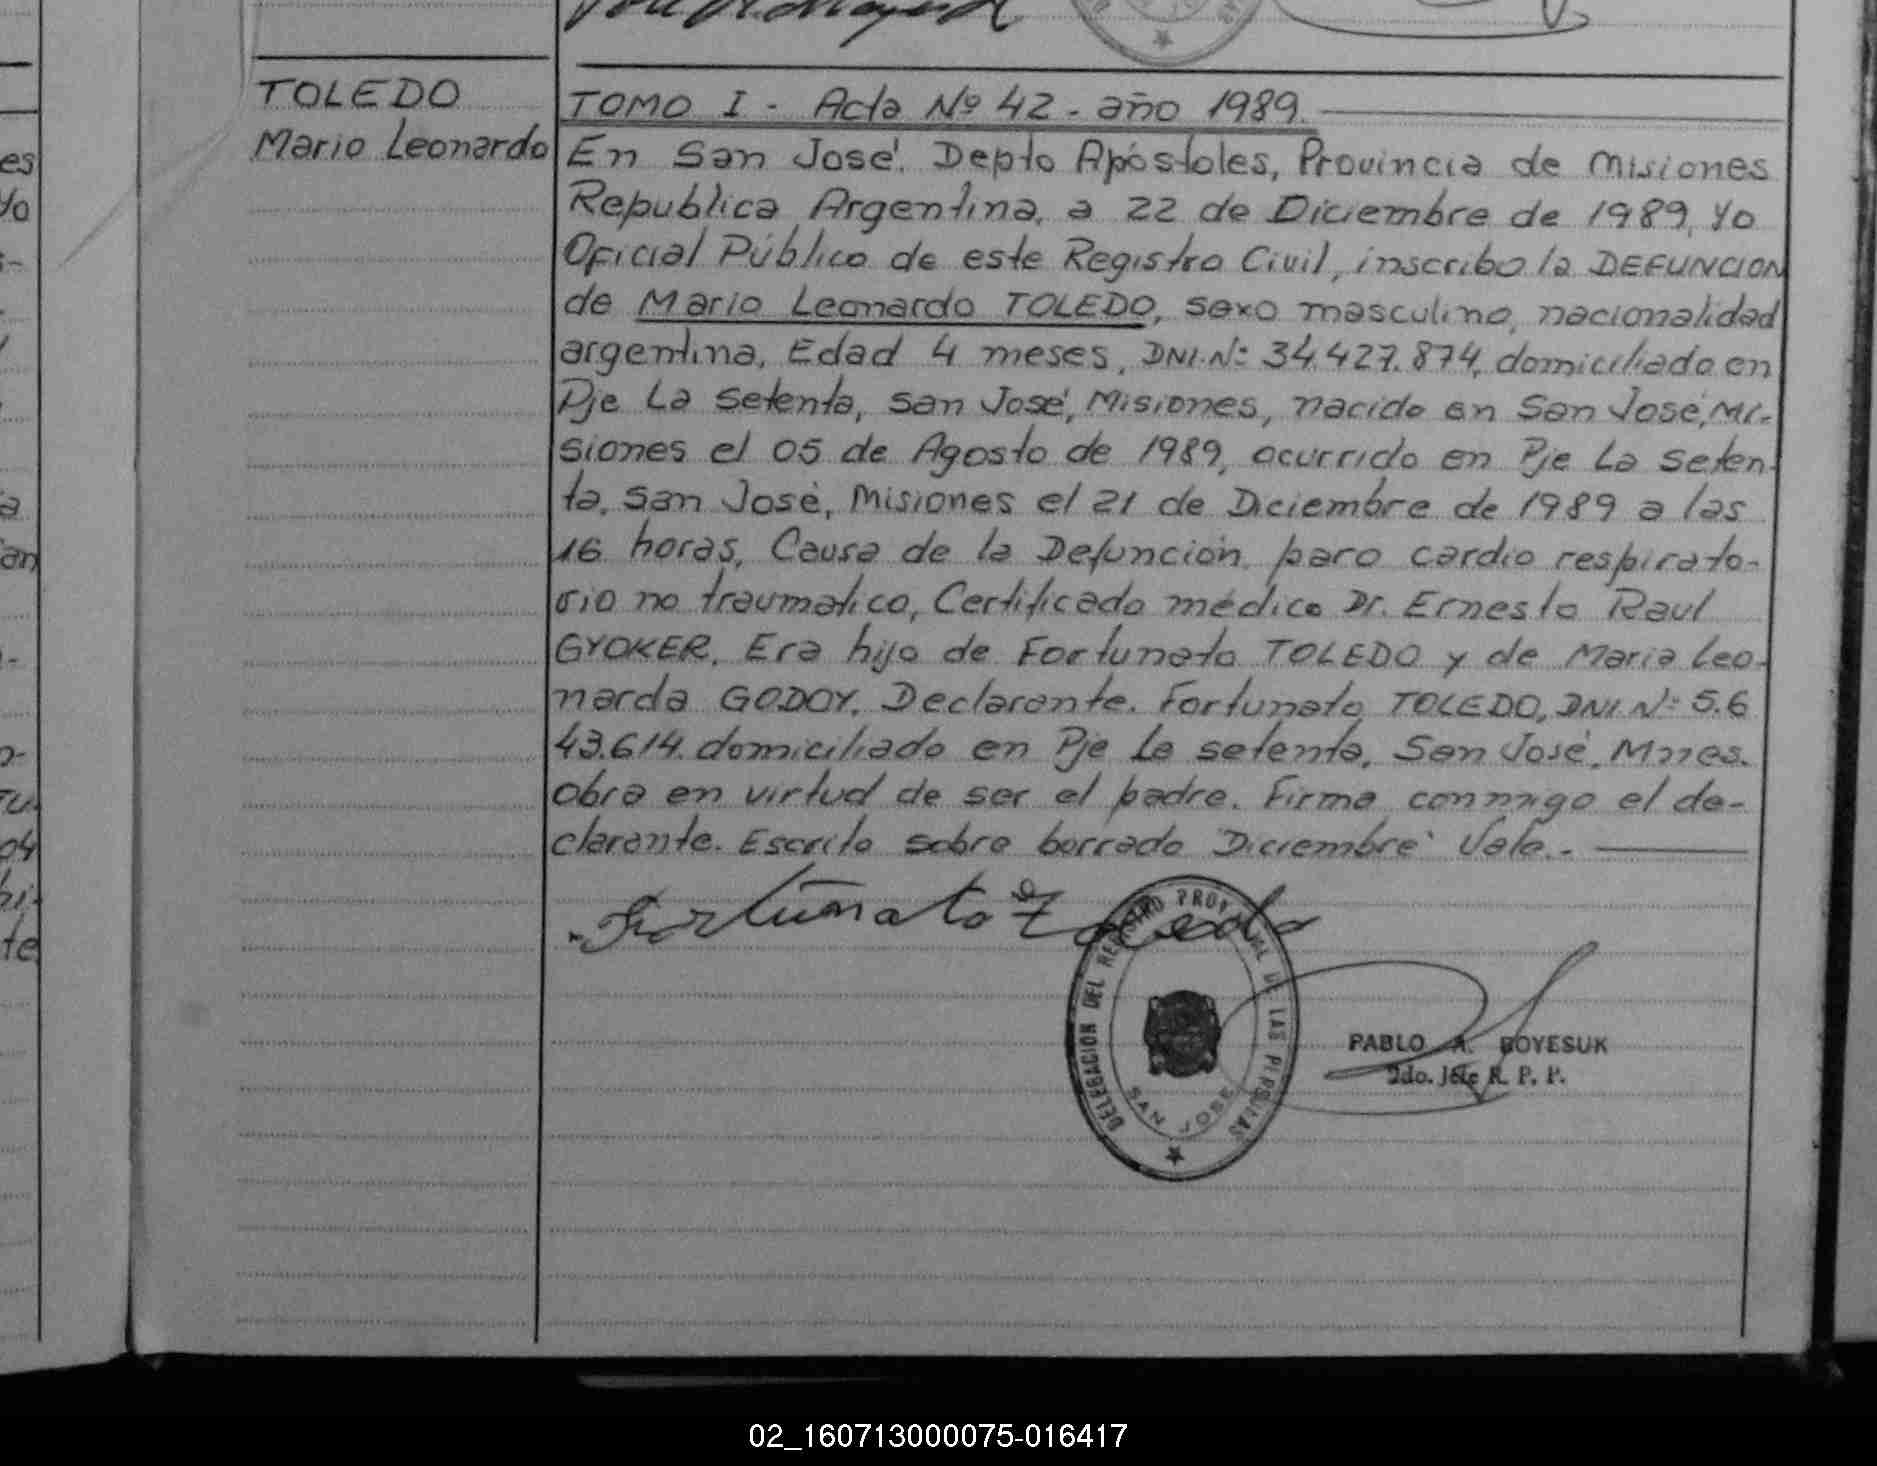 TOLEDO
Mario Leonardo
TOMO I - Acta Nº 42 - año 1989.
En San José. Depto Apóstoles, Provincia de Misiones
Republica Argentina, a 22 de Diciembre de 1989, Yo
Oficial Público de este Registro Civil, inscribo la DEFUNCION
de Mario Leonardo TOLEDO, sexo masculino, nacionalidad
argentina, Edad 4 meses, DNI.Nº 34.427.874, domiciliado en
Pje La Setenta, San José, Misiones, nacido en San José, Mi-
siones el 05 de Agosto de 1989, ocurrido en Pje La Seten-
ta, San José, Misiones el 21 de Diciembre de 1989 a las
16 horas, Causa de la Defunción paro cardio respirato-
rio no traumatico, Certificado médico Dr. Ernesto Raul
GYOKER. Era hijo de Fortunato TOLEDO y de Maria Leo-
narda GODOY. Declarante. Fortunato TOLEDO, DNI.Nº 5.6
43.614. domiciliado en Pje La setenta, San José, Mnes.
obra en virtud de ser el padre. Firma conmigo el de-
clarante. Escrito sobre borrado "Diciembre" Vale.-
Fortunato Toledo
DELEGACION DEL REGISTRO PROVINCIAL DE LAS PERSONAS
SAN JOSE
PABLO A. BOYESUK
2do. Jefe R. P. P.
es
Yo
a
an
TU.
04
hi-
te
02_160713000075-016417